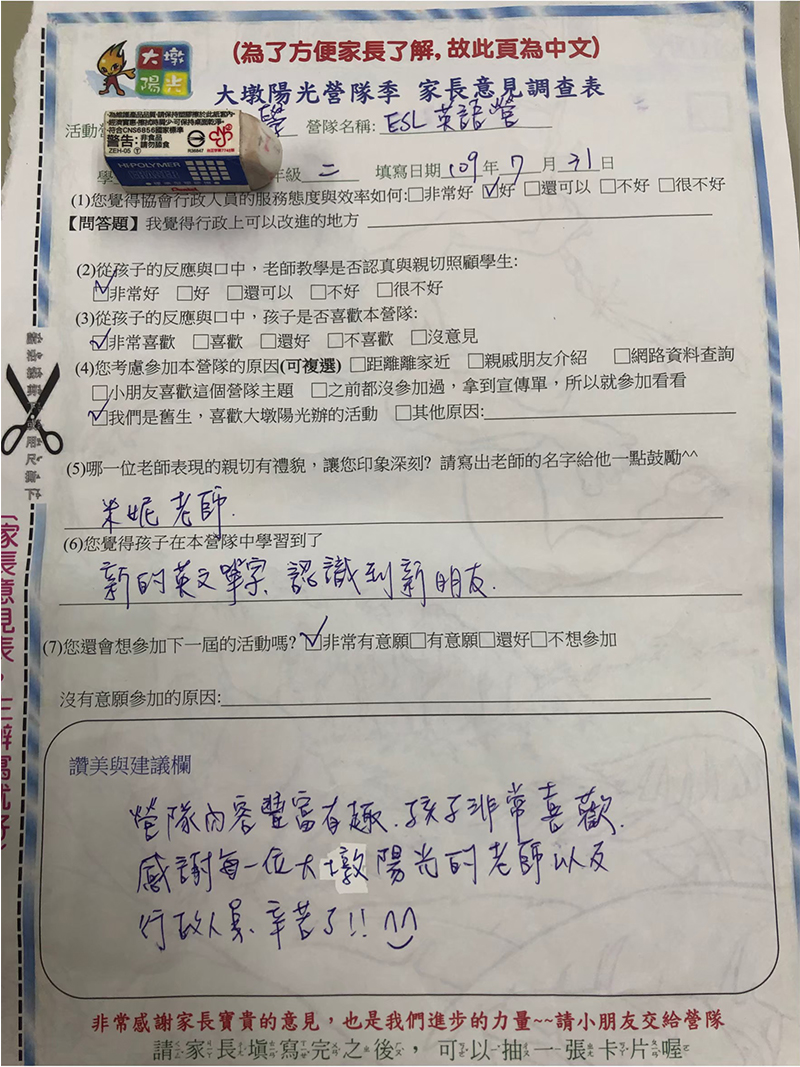 (為了方便家長了解，故此頁為中文)
大墩
陽光
大墩陽光營隊季 家長意見調查表
活動 營隊名稱: ESL 英語營
警告: 非食品 請勿舐食
符合CNS6856國家標準
ZEH-05
HI-POLYMER
Pentel
年級 二 填寫日期 109 年 7 月 31 日
(1)您覺得協會行政人員的服務態度與效率如何:□非常好 ☑好 □還可以 □不好 □很不好
【問答題】我覺得行政上可以改進的地方
(2)從孩子的反應與口中，老師教學是否認真與親切照顧學生:
☑非常好 □好 □還可以 □不好 □很不好
(3)從孩子的反應與口中，孩子是否喜歡本營隊:
☑非常喜歡 □喜歡 □還好 □不喜歡 □沒意見
(4)您考慮參加本營隊的原因(可複選) □距離離家近 □親戚朋友介紹 □網路資料查詢
□小朋友喜歡這個營隊主題 □之前都沒參加過，拿到宣傳單，所以就參加看看
☑我們是舊生，喜歡大墩陽光辦的活動 □其他原因:
(5)哪一位老師表現的親切有禮貌，讓您印象深刻? 請寫出老師的名字給他一點鼓勵^^
米妮老師.
(6)您覺得孩子在本營隊中學習到了
新的英文單字、認識到新朋友.
(7)您還會想參加下一屆的活動嗎? ☑非常有意願□有意願□還好□不想參加
沒有意願參加的原因:
讚美與建議欄
營隊內容豐富有趣、孩子非常喜歡.
感謝每一位大墩陽光的老師以及
行政人員、辛苦了!! ^^
非常感謝家長寶貴的意見，也是我們進步的力量~~請小朋友交給營隊
請家長填寫完之後，可以抽一張卡片喔